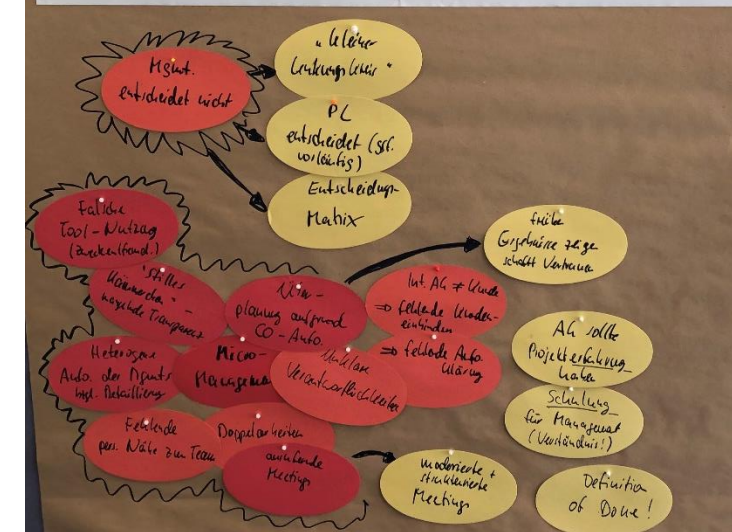 Mgmt.
entscheidet nicht
"kleiner
Lenkungskreis"
PL
entscheidet (ggf.
vorläufig)
Entscheidungs-
Matrix
Falsche
Tool-Nutzung
(zweckentfremd.)
"stilles
Kämmerchen" -
mangelnde Transparenz
Über-
planung aufgrund
CO-Anfo.
Int. AG ≠ Kunde
⇒ fehlende Kunden-
einbinden
⇒ fehlende Anfo.
klärung
frühe
Ergebnisse zeigen
schafft Vertrauen
Heterogene
Anfo. der Mgmts
bzgl. Detaillierung
Micro-
Management
Unklare
Verantwortlichkeiten
AG sollte
Projekterfahrung
haben
Schulung
für Management
(Verständnis!)
Fehlende
pers. Nähe zum Team
Doppelarbeiten
Meetings
moderierte +
strukturierte
Meetings
Definition
of Done!